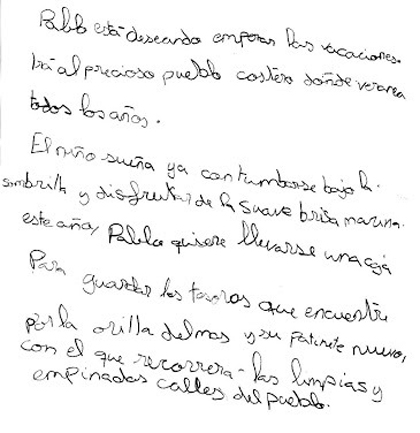 Pablo está deseando empezar las vacaciones.
Irá al precioso pueblo costero dónde veranea
todos los años.
El niño sueña ya con tumbarse bajo la
sombrilla y disfrutar de la suave brisa marina.
este año, Pablo quiere llevarse una caja
Para guardar los tesoros que encuentre
por la orilla del mar y su patinete nuevo,
con el que recorrerá las limpias y
empinadas calles del pueblo.